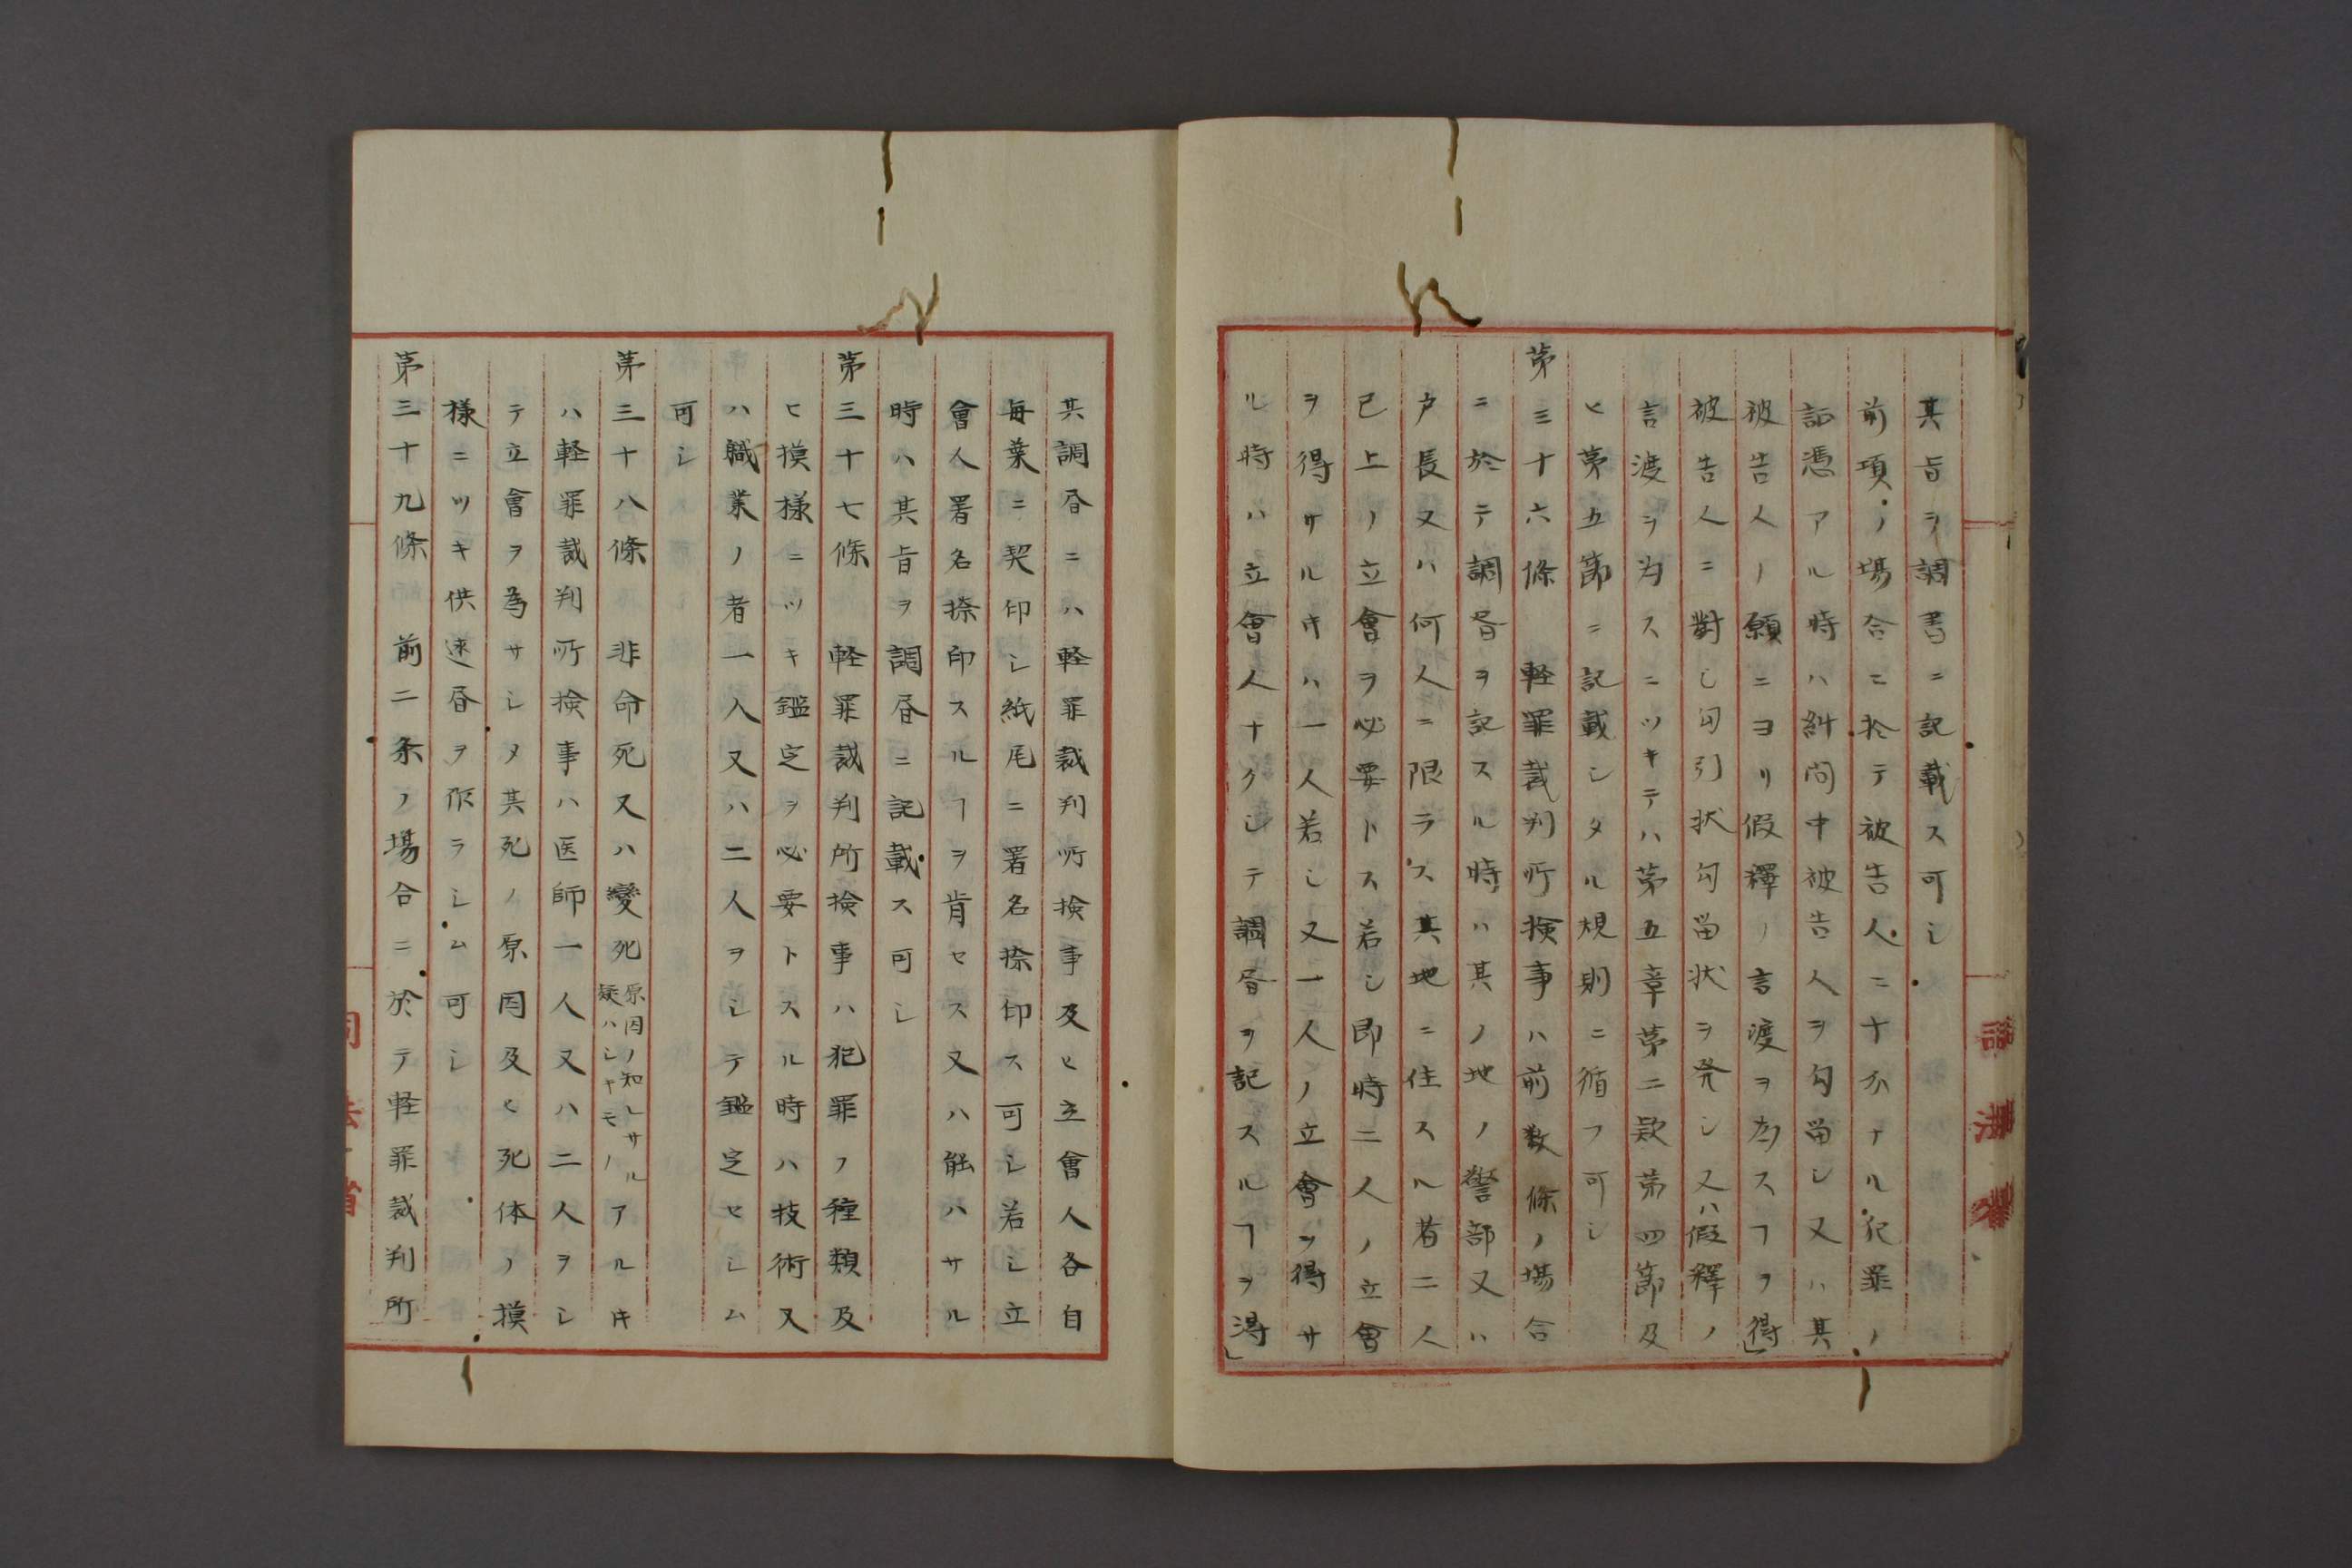 其旨ヲ調書ニ記載ス可シ
前項ノ場合ニ於テ被告人ニ十分ナル犯罪ノ
証憑アル時ハ糾問中被告人ヲ勾留シ又ハ其
被告人ノ願ニヨリ假釋ノ言渡ヲ為スヿヲ得
被告人ニ對シ勾引状勾留状ヲ発シ又ハ假釋ノ
言渡ヲ为スニツキテハ第五章第二款第四節及
ヒ第五節ニ記載シタル規則ニ循フ可シ
第三十六條　軽罪裁判所検事ハ前数條ノ場合
ニ於テ調書ヲ記スル時ハ其ノ地ノ警部又ハ
戸長又ハ何人ニ限ラス其地ニ住スル者二人
已上ノ立會ヲ必要トス若シ即時二人ノ立會
ヲ得サルキハ一人若シ又一人ノ立會ヲ得サ
ル時ハ立會人ナクシテ調書ヲ記スルヿヲ得
其調書ニハ軽罪裁判所検事及ヒ立會人各自
毎葉ニ契印シ紙尾ニ署名捺印ス可シ若シ立
會人署名捺印スルヿヲ肯セス又ハ能ハサル
時ハ其旨ヲ調書ニ記載ス可シ
第三十七條　軽罪裁判所検事ハ犯罪ノ種類及
ヒ摸様ニツキ鑑定ヲ必要トスル時ハ技術又
ハ職業ノ者一人又ハ二人ヲシテ鑑定セシム
可シ
第三十八條　非命死又ハ變死原因ノ知レサル疑ハシキモノアルキ
ハ軽罪裁判所検事ハ医師一人又ハ二人ヲシ
テ立會ヲ為サシメ其死ノ原因及ヒ死体ノ摸
様ニツキ供述書ヲ作ラシム可シ
第三十九條　前二条ノ場合ニ於テ軽罪裁判所